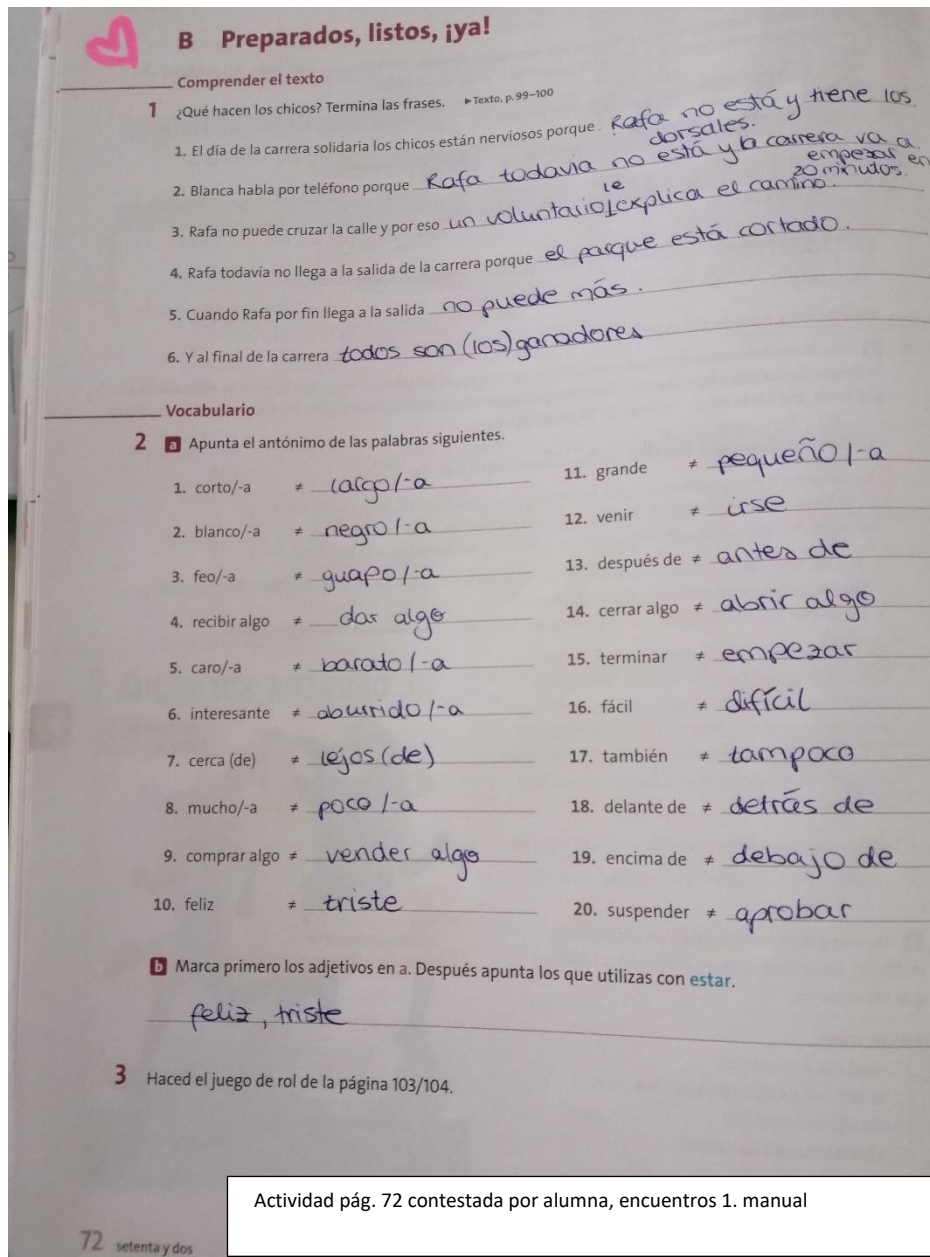 B Preparados, listos, ¡ya!
Comprender el texto
1 ¿Qué hacen los chicos? Termina las frases. ▶Texto, p. 99–100
1. El día de la carrera solidaria los chicos están nerviosos porque Rafa no está y tiene los
dorsales.
2. Blanca habla por teléfono porque Rafa todavía no está y la carrera va a
empezar en
20 minutos.
3. Rafa no puede cruzar la calle y por eso un voluntario le explica el camino.
4. Rafa todavía no llega a la salida de la carrera porque el parque está cortado.
5. Cuando Rafa por fin llega a la salida no puede más.
6. Y al final de la carrera todos son (los) ganadores
Vocabulario
2 a Apunta el antónimo de las palabras siguientes.
1. corto/-a ≠ largo/-a
2. blanco/-a ≠ negro/-a
3. feo/-a ≠ guapo/-a
4. recibir algo ≠ dar algo
5. caro/-a ≠ barato/-a
6. interesante ≠ aburrido/-a
7. cerca (de) ≠ lejos (de)
8. mucho/-a ≠ poco/-a
9. comprar algo ≠ vender algo
10. feliz ≠ triste
11. grande ≠ pequeño/-a
12. venir ≠ irse
13. después de ≠ antes de
14. cerrar algo ≠ abrir algo
15. terminar ≠ empezar
16. fácil ≠ difícil
17. también ≠ tampoco
18. delante de ≠ detrás de
19. encima de ≠ debajo de
20. suspender ≠ aprobar
b Marca primero los adjetivos en a. Después apunta los que utilizas con estar.
feliz, triste
3 Haced el juego de rol de la página 103/104.
Actividad pág. 72 contestada por alumna, encuentros 1. manual
72 setenta y dos